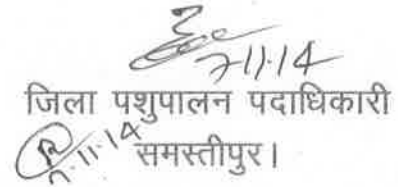 7.11.14
जिला पशुपालन पदाधिकारी
7.11.14
समस्तीपुर।